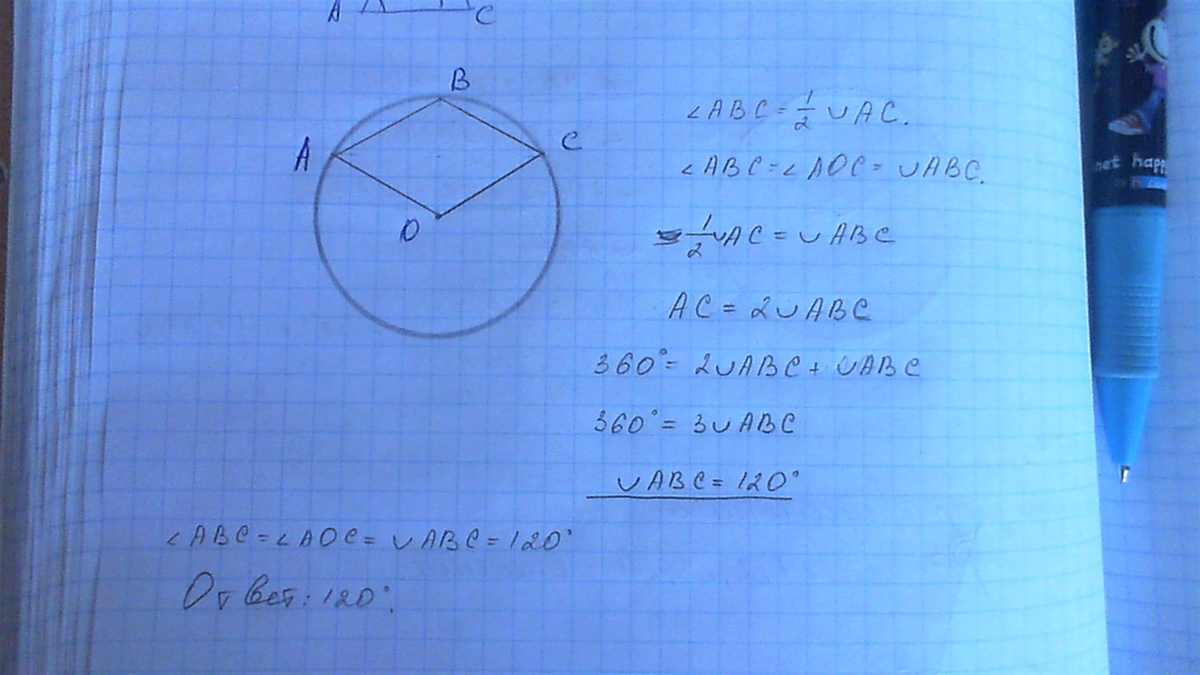 A C
B
A
C
O
∠ABC = 1/2 ∪AC.
∠ABC = ∠AOC = ∪ABC.
1/2 ∪AC = ∪ABC
AC = 2∪ABC
360° = 2∪ABC + ∪ABC
360° = 3∪ABC
∪ABC = 120°
∠ABC = ∠AOC = ∪ABC = 120°
Ответ: 120°.